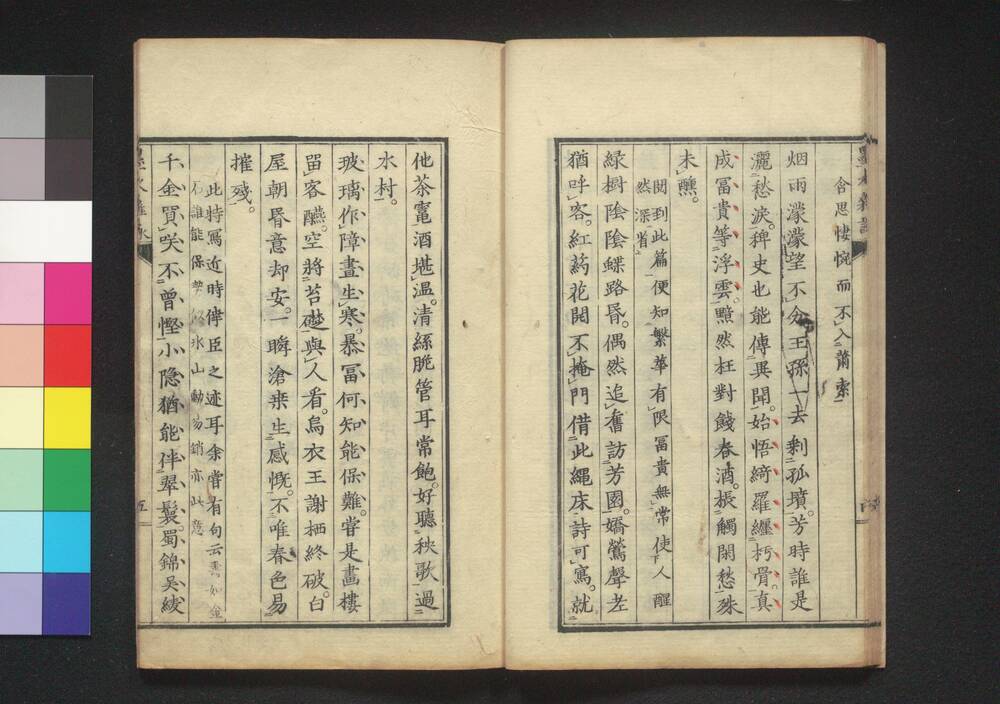 含思悽惋而不入蕭索
烟雨濛濛望不分王孫一去剩孤墳芳時誰是
灑愁淚稗史也能傳異聞始悟綺羅纏朽骨真
成冨貴等浮雲黯然枉對餞春酒振觸閑愁殊
未醺
閱到此篇便知繁華有限冨貴無常使人醒
然深省
綠樹陰陰蝶路昏偶然追舊訪芳園嬌鶯聲老
猶呼客紅药花開不掩門借此繩床詩可寫就
他茶竃酒堪溫清絲脆管耳常飽好聽秧歌過
水村
玻璃作障畫生寒暴冨何知能保難嘗是畫樓
畱客醼空將苔礎與人看烏衣王謝栖終破白
屋朝昏意却安一瞬滄桒生感慨不唯春色易
摧殘
此特寫近時倖臣之迹耳余嘗有句云 如金
石誰能保勢 氷山動易銷亦此意
千金買咲不曾慳小隐猶能伴翠鬟蜀錦吳綾
五